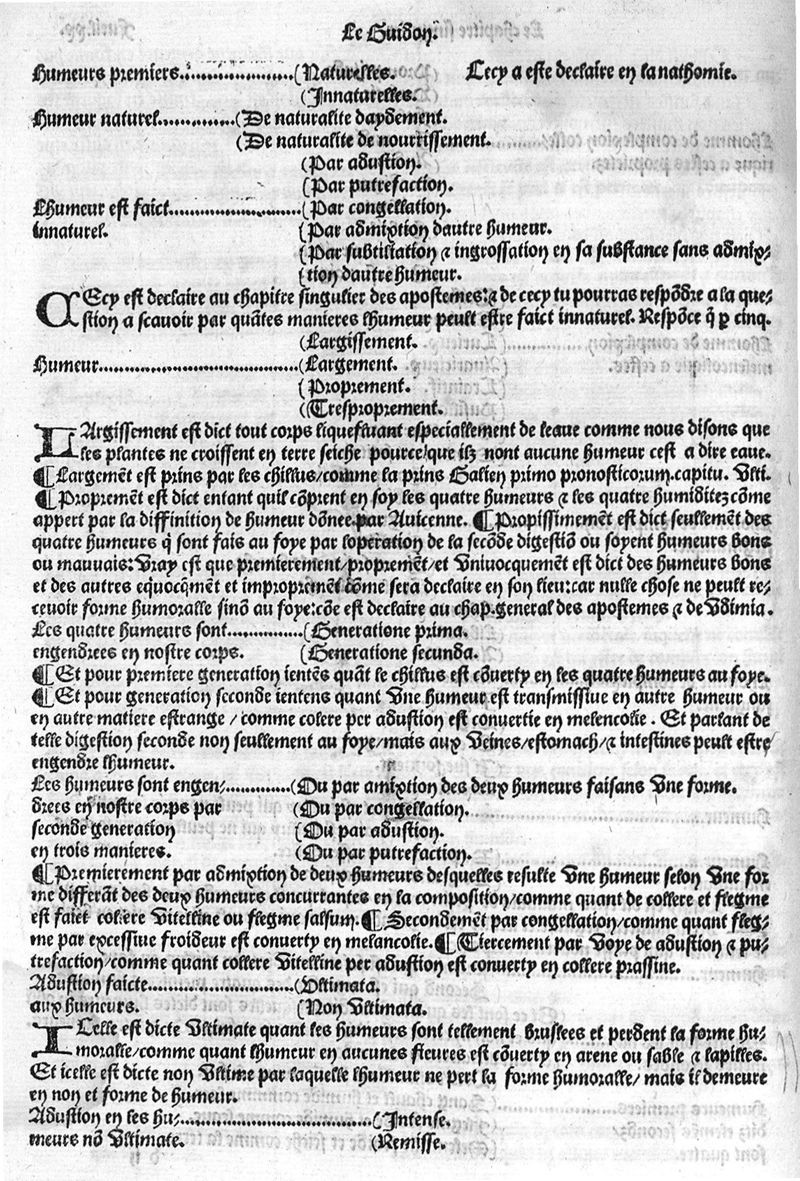 Le Guidon.
Humeurs premiers.....................(Naturelles. Cecy a este declaire en la nathomie.
(Innaturelles.
Humeur naturel.............(De naturalite daydement.
(De naturalite de nourrissement.
(Par adustion.
(Par putrefaction.
Lhumeur est faict.......................(Par congellation.
innaturel. (Par admixtion dautre humeur.
(Par subtiliation ⁊ ingrossation en sa substance sans admix/
(tion dautre humeur.
CEcy est declaire au chapitre singulier des apostemes: ⁊ de cecy tu pourras respõdre a la que/
stion a scauoir par quãtes manieres lhumeur peult estre faict innaturel. Respõce q̃ ꝑ cinq.
(Largissement.
Humeur..................................(Largement.
(Proprement.
(Tresproprement.
LArgissement est dict tout corps liquefluant especiallement de leaue comme nous disons que
les plantes ne croissent en terre seiche pource/que ilz nont aucune humeur cest a dire eaue.
¶Largemẽt est prins par les chillus/comme la prins Galien primo pronosticorum.capitu. Vlti.
¶Propremẽt est dict entant quil cõprent en soy les quatre humeurs ⁊ les quatre humiditez cõme
appert par la diffinition de humeur dõnee par Auicenne. ¶Propissimemẽt est dict seullemẽt des
quatre humeurs q̃ sont fais au foye par loperation de la secõde digestiõ ou soyent humeurs bons
ou mauuais: Vray est que premierement/propremẽt/et Vniuocquemẽt est dict des humeurs bons
et des autres equocq̃mẽt et impropremẽt cõme sera declaire en son lieu:car nulle chose ne peult re/
ceuoir forme humoralle sinõ au foye:cõe est declaire au chap.general des apostemes ⁊ de Vdimia.
Les quatre humeurs sont.............(Generatione prima.
engendrees en nostre corps. (Generatione secunda.
¶Et pour premiere generation ientẽs quãt le chillus est cõuerty en les quatre humeurs au foye.
¶Et pour generation seconde ientens quant Vne humeur est transmissiue en autre humeur ou
en autre matiere estrange / comme colere per adustion est conuertie en melencolie . Et parlant de
telle digestion seconde non seullement au foye/mais aux Veines/estomach/⁊ intestines peult estre
engendre lhumeur.
Les humeurs sont engen/.............(Ou par amixtion des deux humeurs faisans Vne forme.
drees en nostre corps par (Ou par congellation.
seconde generation (Ou par adustion.
en trois manieres. (Ou par putrefaction.
¶Premierement par admixtion de deux humeurs desquelles resulte Vne humeur selon Vne for
me differãt des deux humeurs concurrantes en la composition/comme quant de collere et flegme
est faict colere Vitelline ou flegme salsum.¶Secondemẽt par congellation/comme quant fleg/
me par excessiue froideur est conuerty en melancolie.¶Tiercement par Voye de adustion ⁊ pu/
trefaction/comme quant collere Vitelline per adustion est conuerty en collere prassine.
Adustion faicte.......................(Vltimata.
aux humeurs. (Non Vltimata.
ICelle est dicte Vltimate quant les humeurs sont tellement bruslees et perdent la forme hu/
moralle/comme quant lhumeur en aucunes fieures est cõuerty en arene ou sable ⁊ lapilles.
Et icelle est dicte non Vltime par laquelle lhumeur ne pert la forme humoralle/ mais il demeure
en non et forme de humeur.
Adustion en les hu/..............................(Intense.
meurs nõ Vltimate. (Remisse.